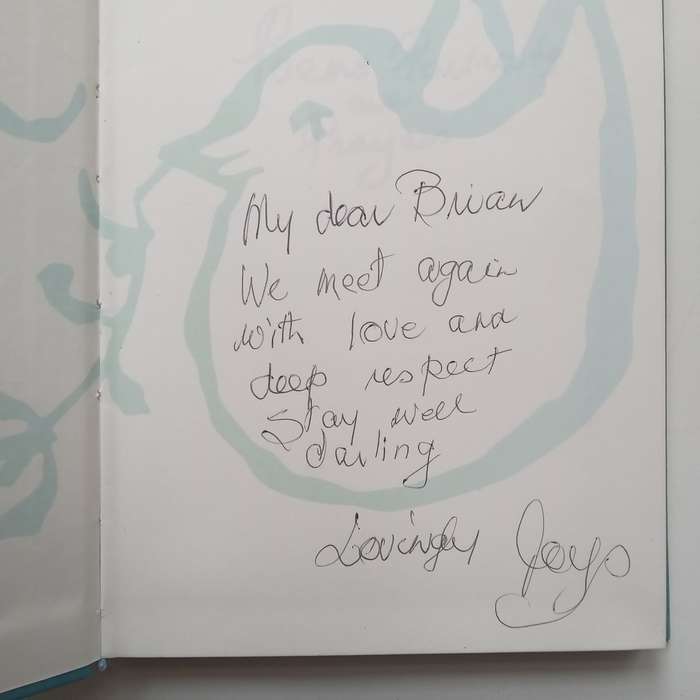 My dear Brian
We meet again
with love and
deep respect
Stay well
darling
Lovingly